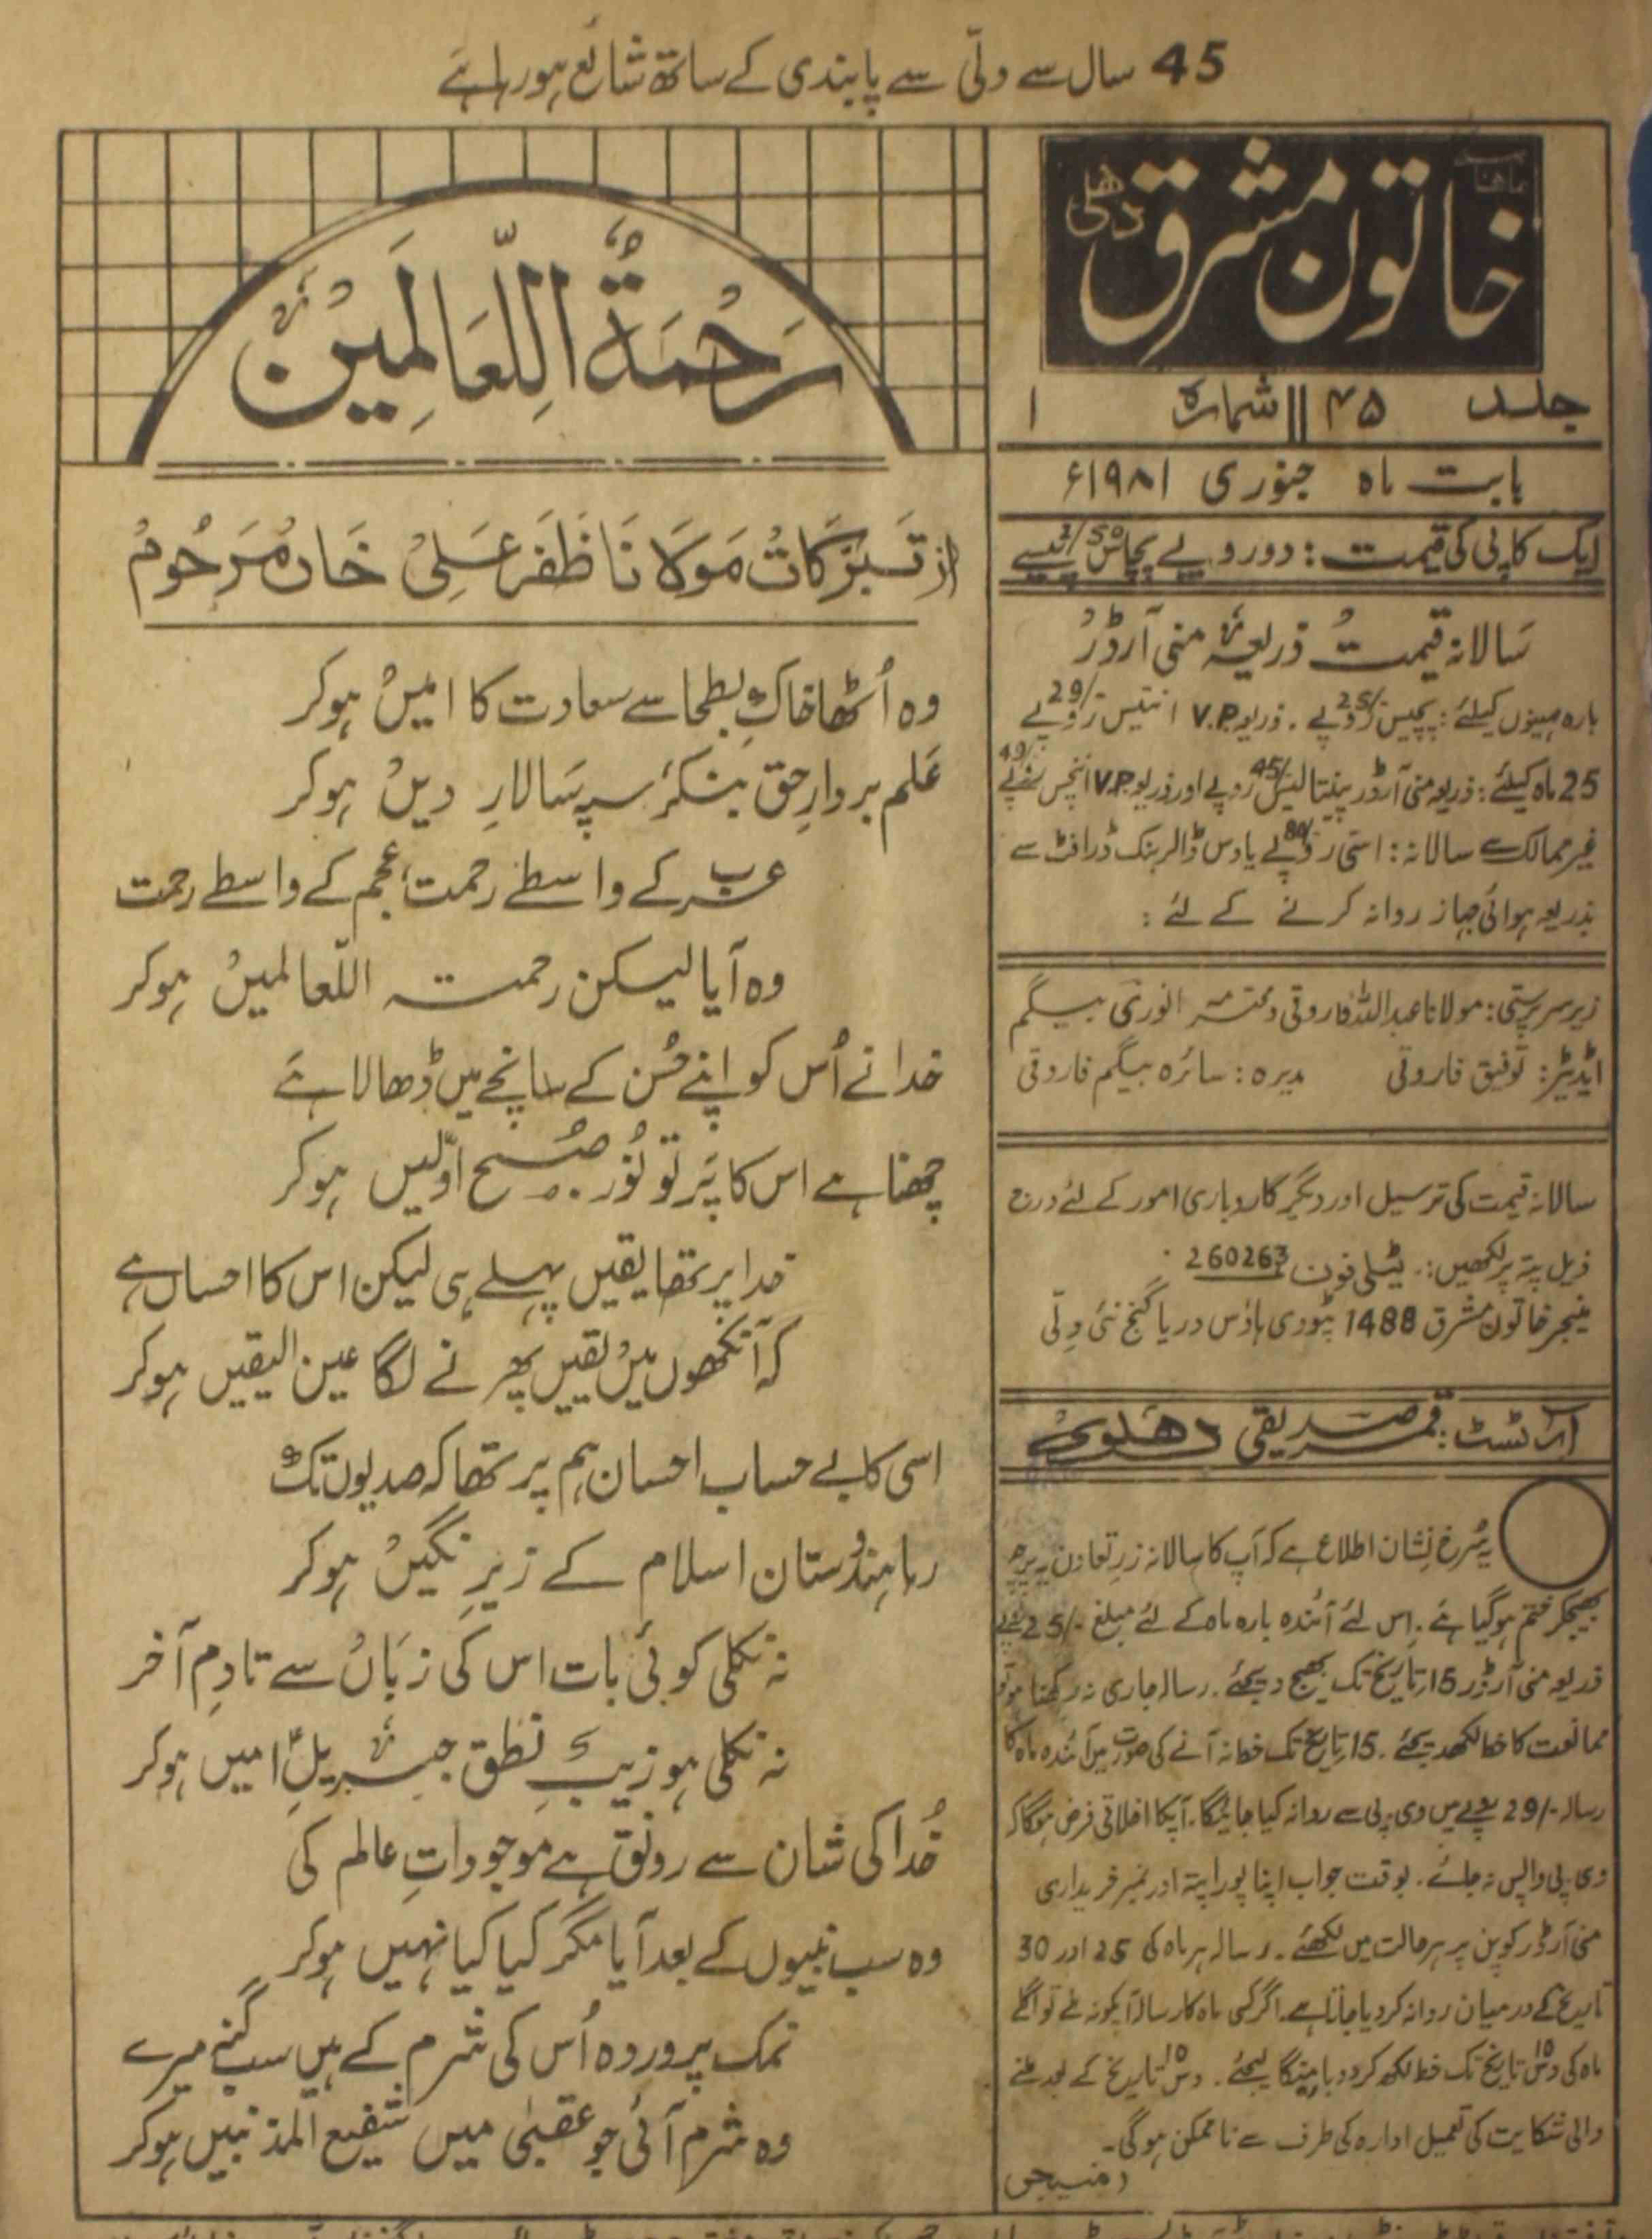 45 سال سے دلّی سے پابندی کے ساتھ شائع ہورہا ہے
ماهنامہ
خاتون مشرق
دهلی
جلد ۴۵ || شمارہ ۱
بابت ماہ جنوری ۱۹۸۱ء
ایک کاپی کی قیمت : دو روپے پچاس پیسے 2/50
سالانہ قیمت ذریعہ منی آرڈر
بارہ مہینوں کیلئے : پچیس روپے 25/- . ذریعہ V.P. انتیس روپے 29/-
25 ماہ کیلئے : ذریعہ منی آرڈر پینتالیس روپے 45/- اور ذریعہ V.P. انچس روپے 49/-
غیر ممالک سالانہ : اسّی روپے 80/- یا دس ڈالر بنک ڈرافٹ سے
بذریعہ ہوائی جہاز روانہ کرنے کے لئے :
زیر سرپرستی : مولانا عبداللہ فاروقی و محترمہ انوری بیگم
ایڈیٹر : توفیق فاروقی مدیرہ : سائرہ بیگم فاروقی
سالانہ قیمت کی ترسیل اور دیگر کاروباری امور کے لئے درج
ذیل پتہ پر لکھیں :۔ ٹیلی فون 260263
منیجر خاتون مشرق 1488 پٹودی ہاؤس دریا گنج نئی دلّی
آرٹسٹ : قمر صدیقی دھلوی
یہ سُرخ نِشان اطلاع ہے کہ آپ کا سالانہ زرِ تعاون یہ پرچہ
بھیجکر ختم ہوگیا ہے . اِس لئے آئندہ بارہ ماہ کے لئے مبلغ -/25 روپے
ذریعہ منی آرڈر 15 تاریخ تک بھیج دیجئے . رسالہ جاری نہ رکھنا ہو تو
ممانعت کا خط لکھدیجئے . 15 تاریخ تک خط نہ آنے کی صورت میں آئندہ ماہ کا
رسالہ -/29 روپے میں وی پی سے روانہ کیا جائیگا . آپکا اخلاقی فرض ہوگا کہ
وی پی واپس نہ جائے . بوقت جواب اپنا پورا پتہ اور نمبر خریداری
منی آرڈر کوپن پر ہر حالت میں لکھئے . رسالہ ہر ماہ کی 25 اور 30
تاریخ کے درمیان روانہ کردیا جاتا ہے . اگر کسی ماہ کا رسالہ آپکو نہ ملے تو اگلے
ماہ کی دس ۱۰ تاریخ تک خط لکھ کر دوبارہ منگا لیجئے . دس ۱۰ تاریخ کے بعد ملنے
والی شکایت کی تعمیل ادارہ کی طرف سے ناممکن ہوگی ۔
(منیجر)
رَحْمَۃٌ اللِّلعَالَمِیْنْ
از تَبرّکاتْ مَولَانَا ظَفَر عَلِیْ خَاں مَرحُومْ
وہ اُٹھا خاکِ بطحا سے سعادت کا امیںْ ہوکر
عَلم بردارِ حق بنکر سپہ سَالارِ دیںْ ہوکر
عرب کے واسطے رحمت، عجم کے واسطے رحمت
وہ آیا لیکن رحمتہ اللّعالمیںْ ہوکر
خدا نے اُس کو اپنے حُسن کے سانچے میں ڈھالا ہے
چھنا ہے اس کا پَرتو نُورِ صُبحِ اوّلیں ہوکر
خدا پر تھا یقیں پہلے ہی لیکن اس کا احساں ہے
کہ آنکھوں میں یقیں پھرنے لگا عین الیقیں ہوکر
اسی کا بے حساب احسان ہم پر تھا کہ صدیوں تک
رہا ہندُوستان اسلام کے زیرِ نگیںْ ہوکر
نہ نکلی کوئی بات اس کی زبَاں سے تادمِ آخر
نہ نکلی ہو زیبِ نطق جبریلِ امیں ہوکر
خُدا کی شان سے رونق ہے موجوداتِ عالم کی
وہ سب نبیوں کے بعد آیا مگر کیا کیا نہیں ہوکر
نمک پروردہ اُس کی شرم کے ہیں سب گنہ میرے
وہ شرم آئی جو عقبیٰ میں شفیع المذنبیں ہوکر